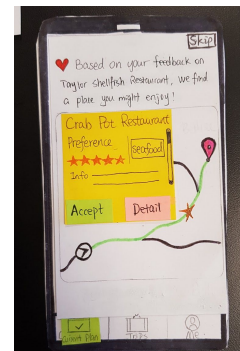 Skip
Based on your feedback on
Taylor Shellfish Restaurant, we find
a place you might enjoy!
Crab Pot Restaurant
Preference
seafood
Info
Accept
Detail
Current Plan
Trips
Me